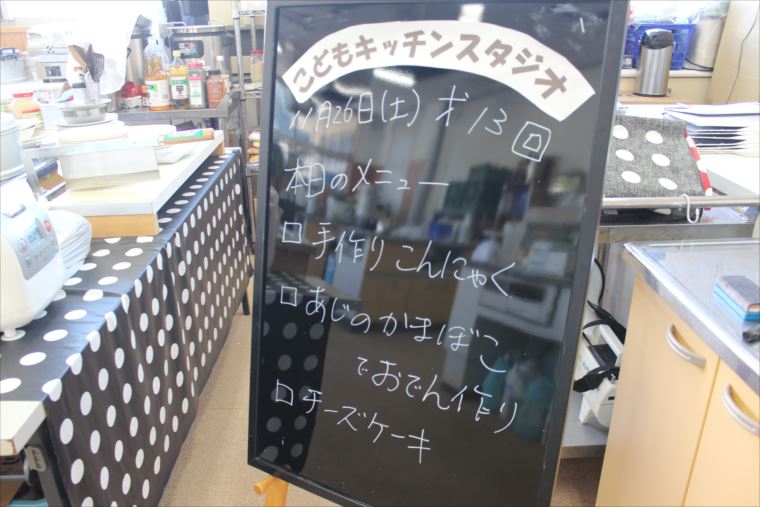 こどもキッチンスタジオ
11月26日(土) 才13回
本日のメニュー
□ 手作りこんにゃく
□ あじのかまぼこ
でおでん作り
□ チーズケーキ